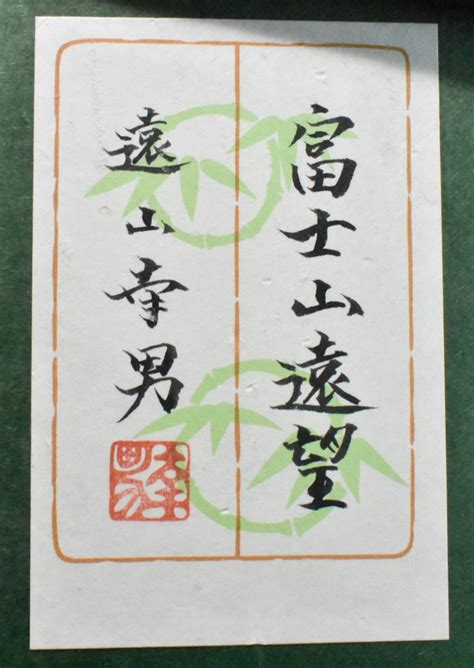 富士山遠望
遠山幸男